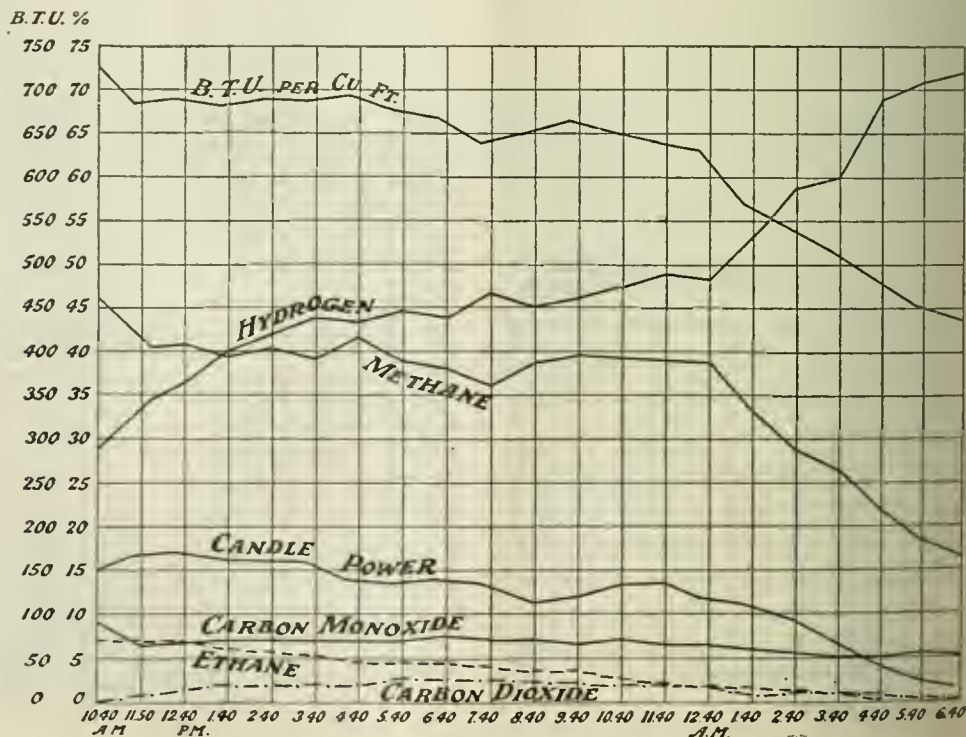 B.T.U. %
750 75
700 70
650 65
600 60
550 55
500 50
450 45
400 40
350 35
300 30
250 25
200 20
150 15
100 10
50 5
0 0
B.T.U. PER CU FT.
HYDROGEN
METHANE
CANDLE POWER
CARBON MONOXIDE
ETHANE
CARBON DIOXIDE
10.40 11.50 12.40 1.40 2.40 3.40 4.40 5.40 6.40 7.40 8.40 9.40 10.40 11.40 12.40 1.40 2.40 3.40 4.40 5.40 6.40
AM PM. A.M.